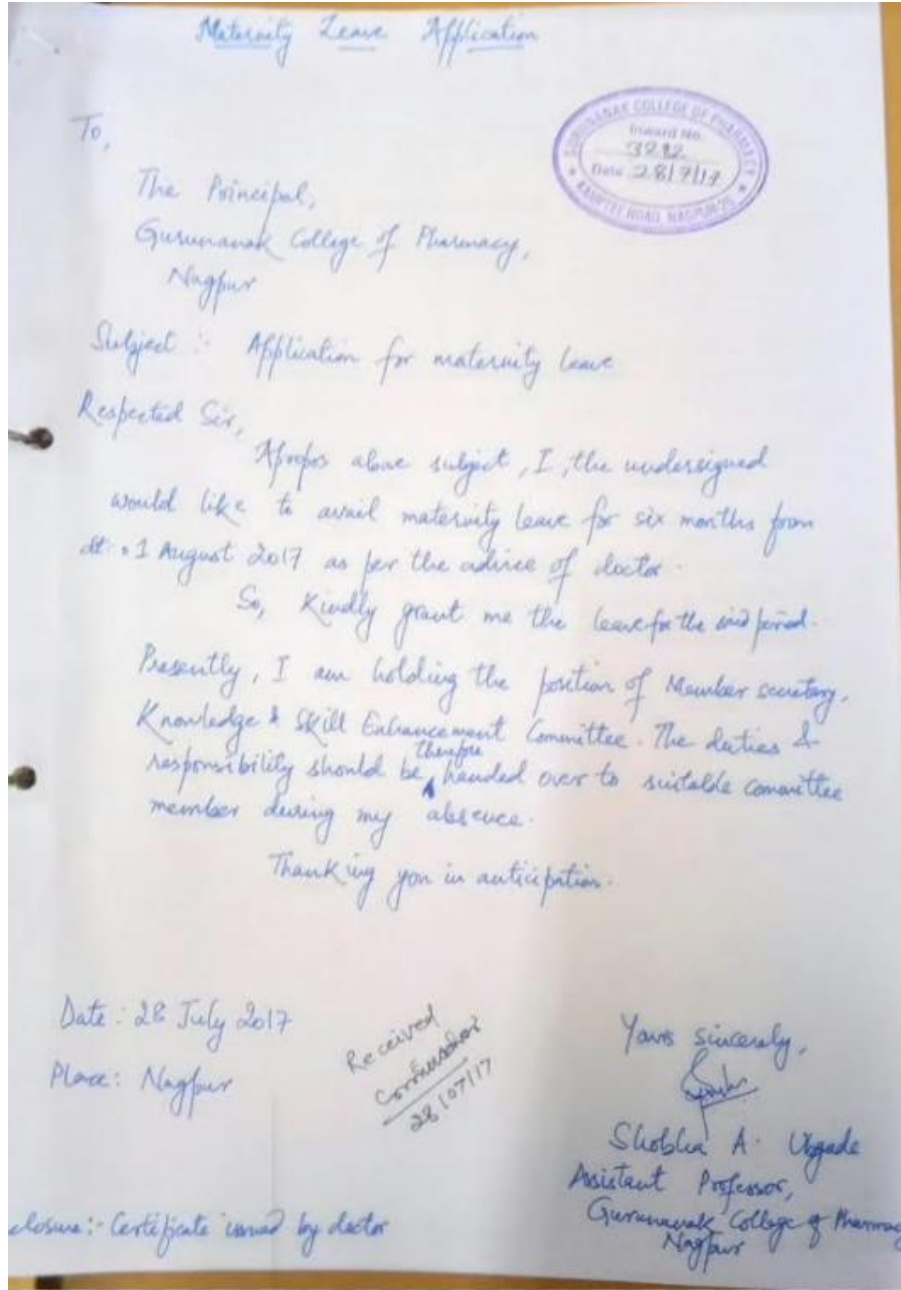 Maternity Leave Application
GURUNANAK COLLEGE OF PHARMACY
Inward No.
3282
Date 28/7/17
KAMPTEE ROAD, NAGPUR-26
To,
The Principal,
Gurunanak College of Pharmacy,
Nagpur
Subject :- Application for maternity leave
Respected Sir,
Apropos above subject, I, the undersigned
would like to avail maternity leave for six months from
dt: 01 August 2017 as per the advice of doctor.
So, Kindly grant me the leave for the said period.
Presently, I am holding the position of Member secretary,
Knowledge & Skill Enhancement Committee. The duties &
responsibility should be therefore handed over to suitable committee
member during my absence.
Thanking you in anticipation.
Date : 28 July 2017
Place : Nagpur
Received
28/07/17
Yours sincerely,
Shobha A. Ubgade
Assistant Professor,
Gurunanak College of Pharmacy
Nagpur
closure:- Certificate issued by doctor